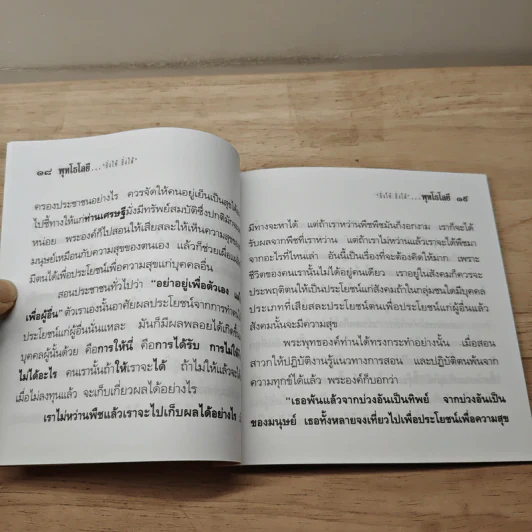 ๑๘ พุทโธโลยี... "ยิ่งให้ ยิ่งได้"
ครองประชาชนอย่างไร ควรจัดให้คนอยู่เย็นเป็นสุขได้
ไปชี้ทางให้แก่ท่านเศรษฐีมั่งมีทรัพย์สมบัติซึ่งปกติมัก
หน่อย พระองค์ก็ไปสอนให้เสียสละให้เห็นความสุขของ
มนุษย์เหมือนกับความสุขของตนเอง แล้วก็ช่วยเผื่อแผ่
มีตนได้เพื่อประโยชน์เพื่อความสุขแก่บุคคลอื่น
สอนประชาชนทั่วไปว่า "อย่าอยู่เพื่อตัวเอง
เพื่อผู้อื่น" ตัวเราเองนั้นอาศัยผลประโยชน์จากการทำ
ประโยชน์แก่ผู้อื่นนั่นแหละ มันก็มีผลพลอยได้เกิด
บุคคลผู้นั้นด้วย คือการให้นี่ คือการได้รับ การไม่ให้
ไม่ได้อะไร คนเรานั้นถ้าให้เราจะได้ ถ้าไม่ให้แล้วจะ
เมื่อไม่ลงทุนแล้ว จะเก็บเกี่ยวผลได้อย่างไร
เราไม่หว่านพืชแล้วเราจะไปเก็บผลได้อย่างไร
"ยิ่งให้ ยิ่งได้" ...พุทโธโลยี ๑๙
มีทางจะหาได้ แต่ถ้าเราหว่านพืชพืชมันก็งอกงาม เราก็จะได้
รับผลจากพืชที่เราหว่าน แต่ถ้าเราไม่หว่านแล้วเราจะได้พืชมา
จากอะไรที่ไหนเล่า อันนี้เป็นเรื่องที่จะต้องคิดให้มาก เพราะ
ชีวิตของคนเรานั้นไม่ได้อยู่คนเดียว เราอยู่ในสังคมก็ควรจะ
ประพฤติตนให้เป็นประโยชน์แก่สังคมถ้าในกลุ่มชนใดมีบุคคล
ประเภทที่เสียสละประโยชน์ตนเพื่อประโยชน์แก่ผู้อื่นแล้ว
สังคมนั้นจะมีความสุข
พระพุทธองค์ท่านได้ทรงกระทำอย่างนั้น เมื่อสอน
สาวกให้ปฏิบัติงานรู้แนวทางการสอน และปฏิบัติตนพ้นจาก
ความทุกข์ได้แล้ว พระองค์ก็บอกว่า
"เธอพ้นแล้วจากบ่วงอันเป็นทิพย์ จากบ่วงอันเป็น
ของมนุษย์ เธอทั้งหลายจงเที่ยวไปเพื่อประโยชน์เพื่อความสุข